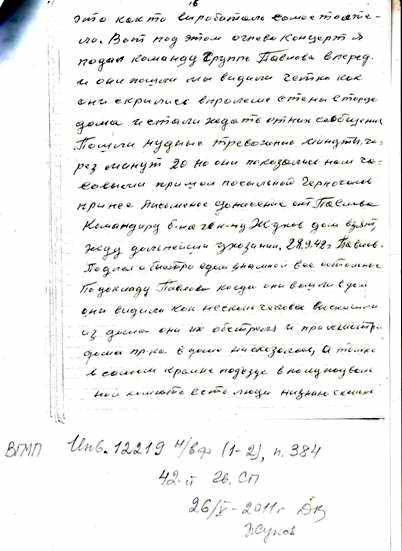 16
это как то выработали самостояте-
ло. Вот под этом огнево концерт я
подал команду группе Павлова вперед.
и они пошли мы видили четко как
они скрылись в проломе стены в торце
дома и стали ждать от них сообщения
Пошли нудные тревожние минуты, че-
рез минут 20 но они показались нам ча-
совыми пришол посыльной Черноголов
принес писменое донесение от Павлова
Командиру б-на гв к-ну Жуков дом взят,
жду дальнейши указании, 28.9.42г Павлов.
Подня
По докладу Павлова когда они вошли в дом
они видили как несколь человек выскочили
из дома они их обстреля и прочистри
дома пр-ка в доме ни оказалось, А только
в самом крайне подъезде в полуподвал
ной комнате есть люди
ВГМП Инв. 12219 н/вф (1-2), п. 384
42-й гв. СП
26/V-2011г
Жуков